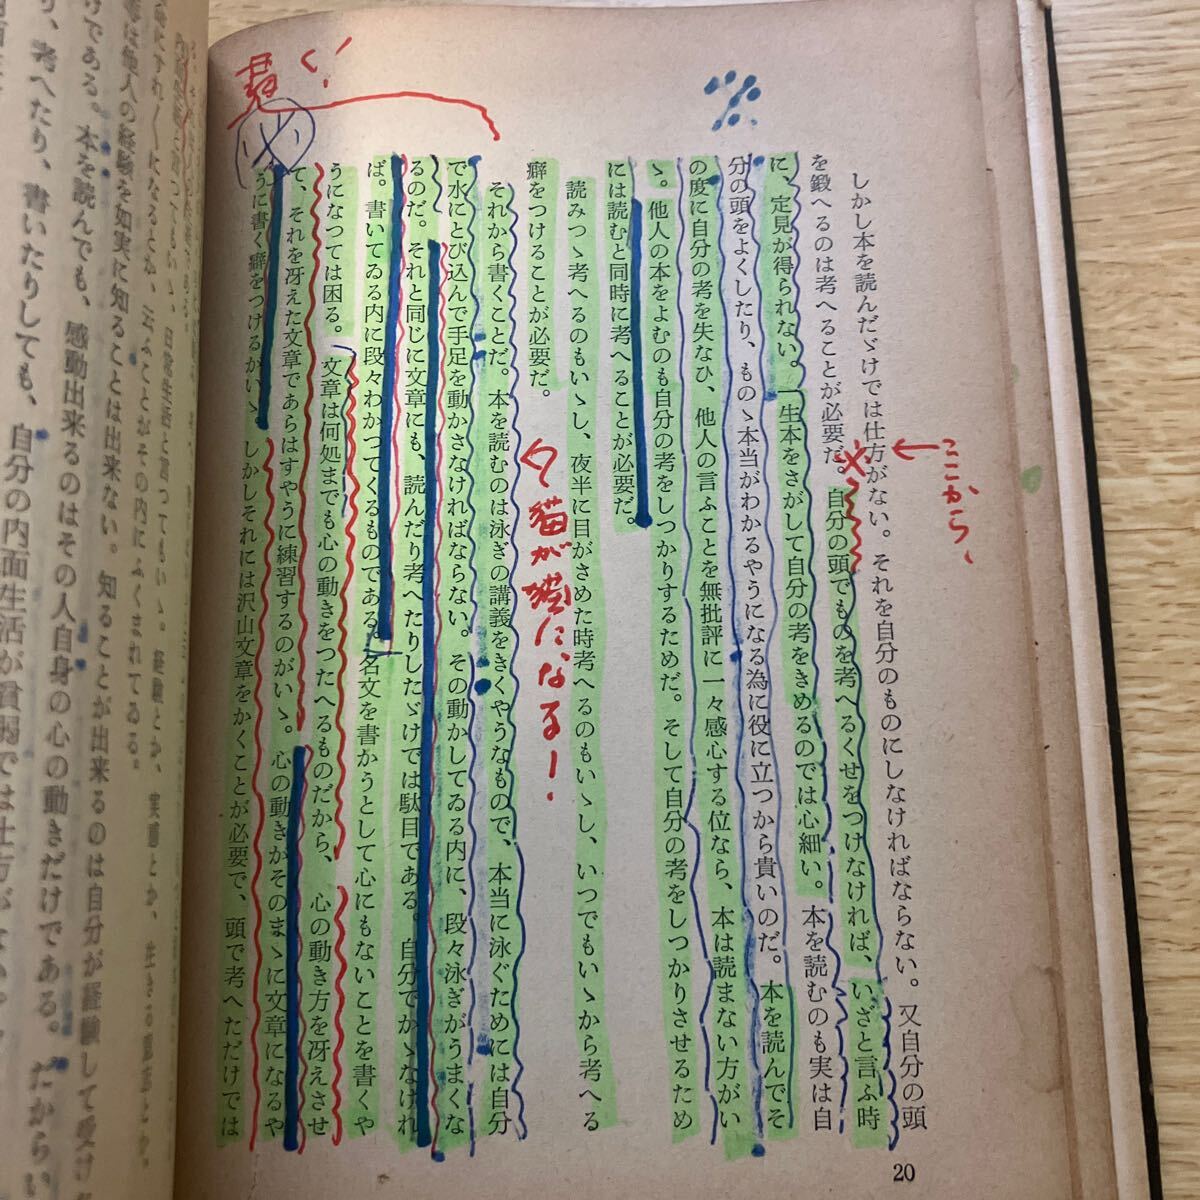 しかし本を読んだゞけでは仕方がない。それを自分のものにしなければならない。又自分の頭
を鍛へるのは考へることが必要だ。自分の頭でものを考へるくせをつけなければ、いざと言ふ時
に、定見が得られない。一生本をさがして自分の考をきめるのでは心細い。本を読むのも実は自
分の頭をよくしたり、ものゝ本当がわかるやうになる為に役に立つから貴いのだ。本を読んでそ
の度に自分の考を失なひ、他人の言ふことを無批評に一々感心する位なら、本は読まない方がい
ゝ。他人の本をよむのも自分の考をしつかりするためだ。そして自分の考をしつかりさせるため
には読むと同時に考へることが必要だ。
読みつゝ考へるのもいゝし、夜半に目がさめた時考へるのもいゝし、いつでもいゝから考へる
癖をつけることが必要だ。
それから書くことだ。本を読むのは泳ぎの講義をきくやうなもので、本当に泳ぐためには自分
で水にとび込んで手足を動かさなければならない。その動かしてゐる内に、段々泳ぎがうまくな
るのだ。それと同じに文章にも、読んだり考へたりしたゞけでは駄目である。自分でかゝなけれ
ば。書いてゐる内に段々わかつてくるものである。名文を書かうとして心にもないことを書くや
うになつては困る。文章は何処までも心の動きをつたへるものだから、心の動き方を冴えさせ
て、それを冴えた文章であらはすやうに練習するのがいゝ。心の動きがそのまゝに文章になるや
うに書く癖をつけるがいゝ。しかしそれには沢山文章をかくことが必要で、頭で考へただけでは
20
ここから
猫が
になるー
り、考へたり、書いたりしても、自分の内面生活が貧弱では仕方がない。
けである。本を読んでも、感動出来るのはその人自身の心の動きだけである。だからい
は他人の経験を如実に知ることは出来ない。知ることが出来るのは自分が経験して受け